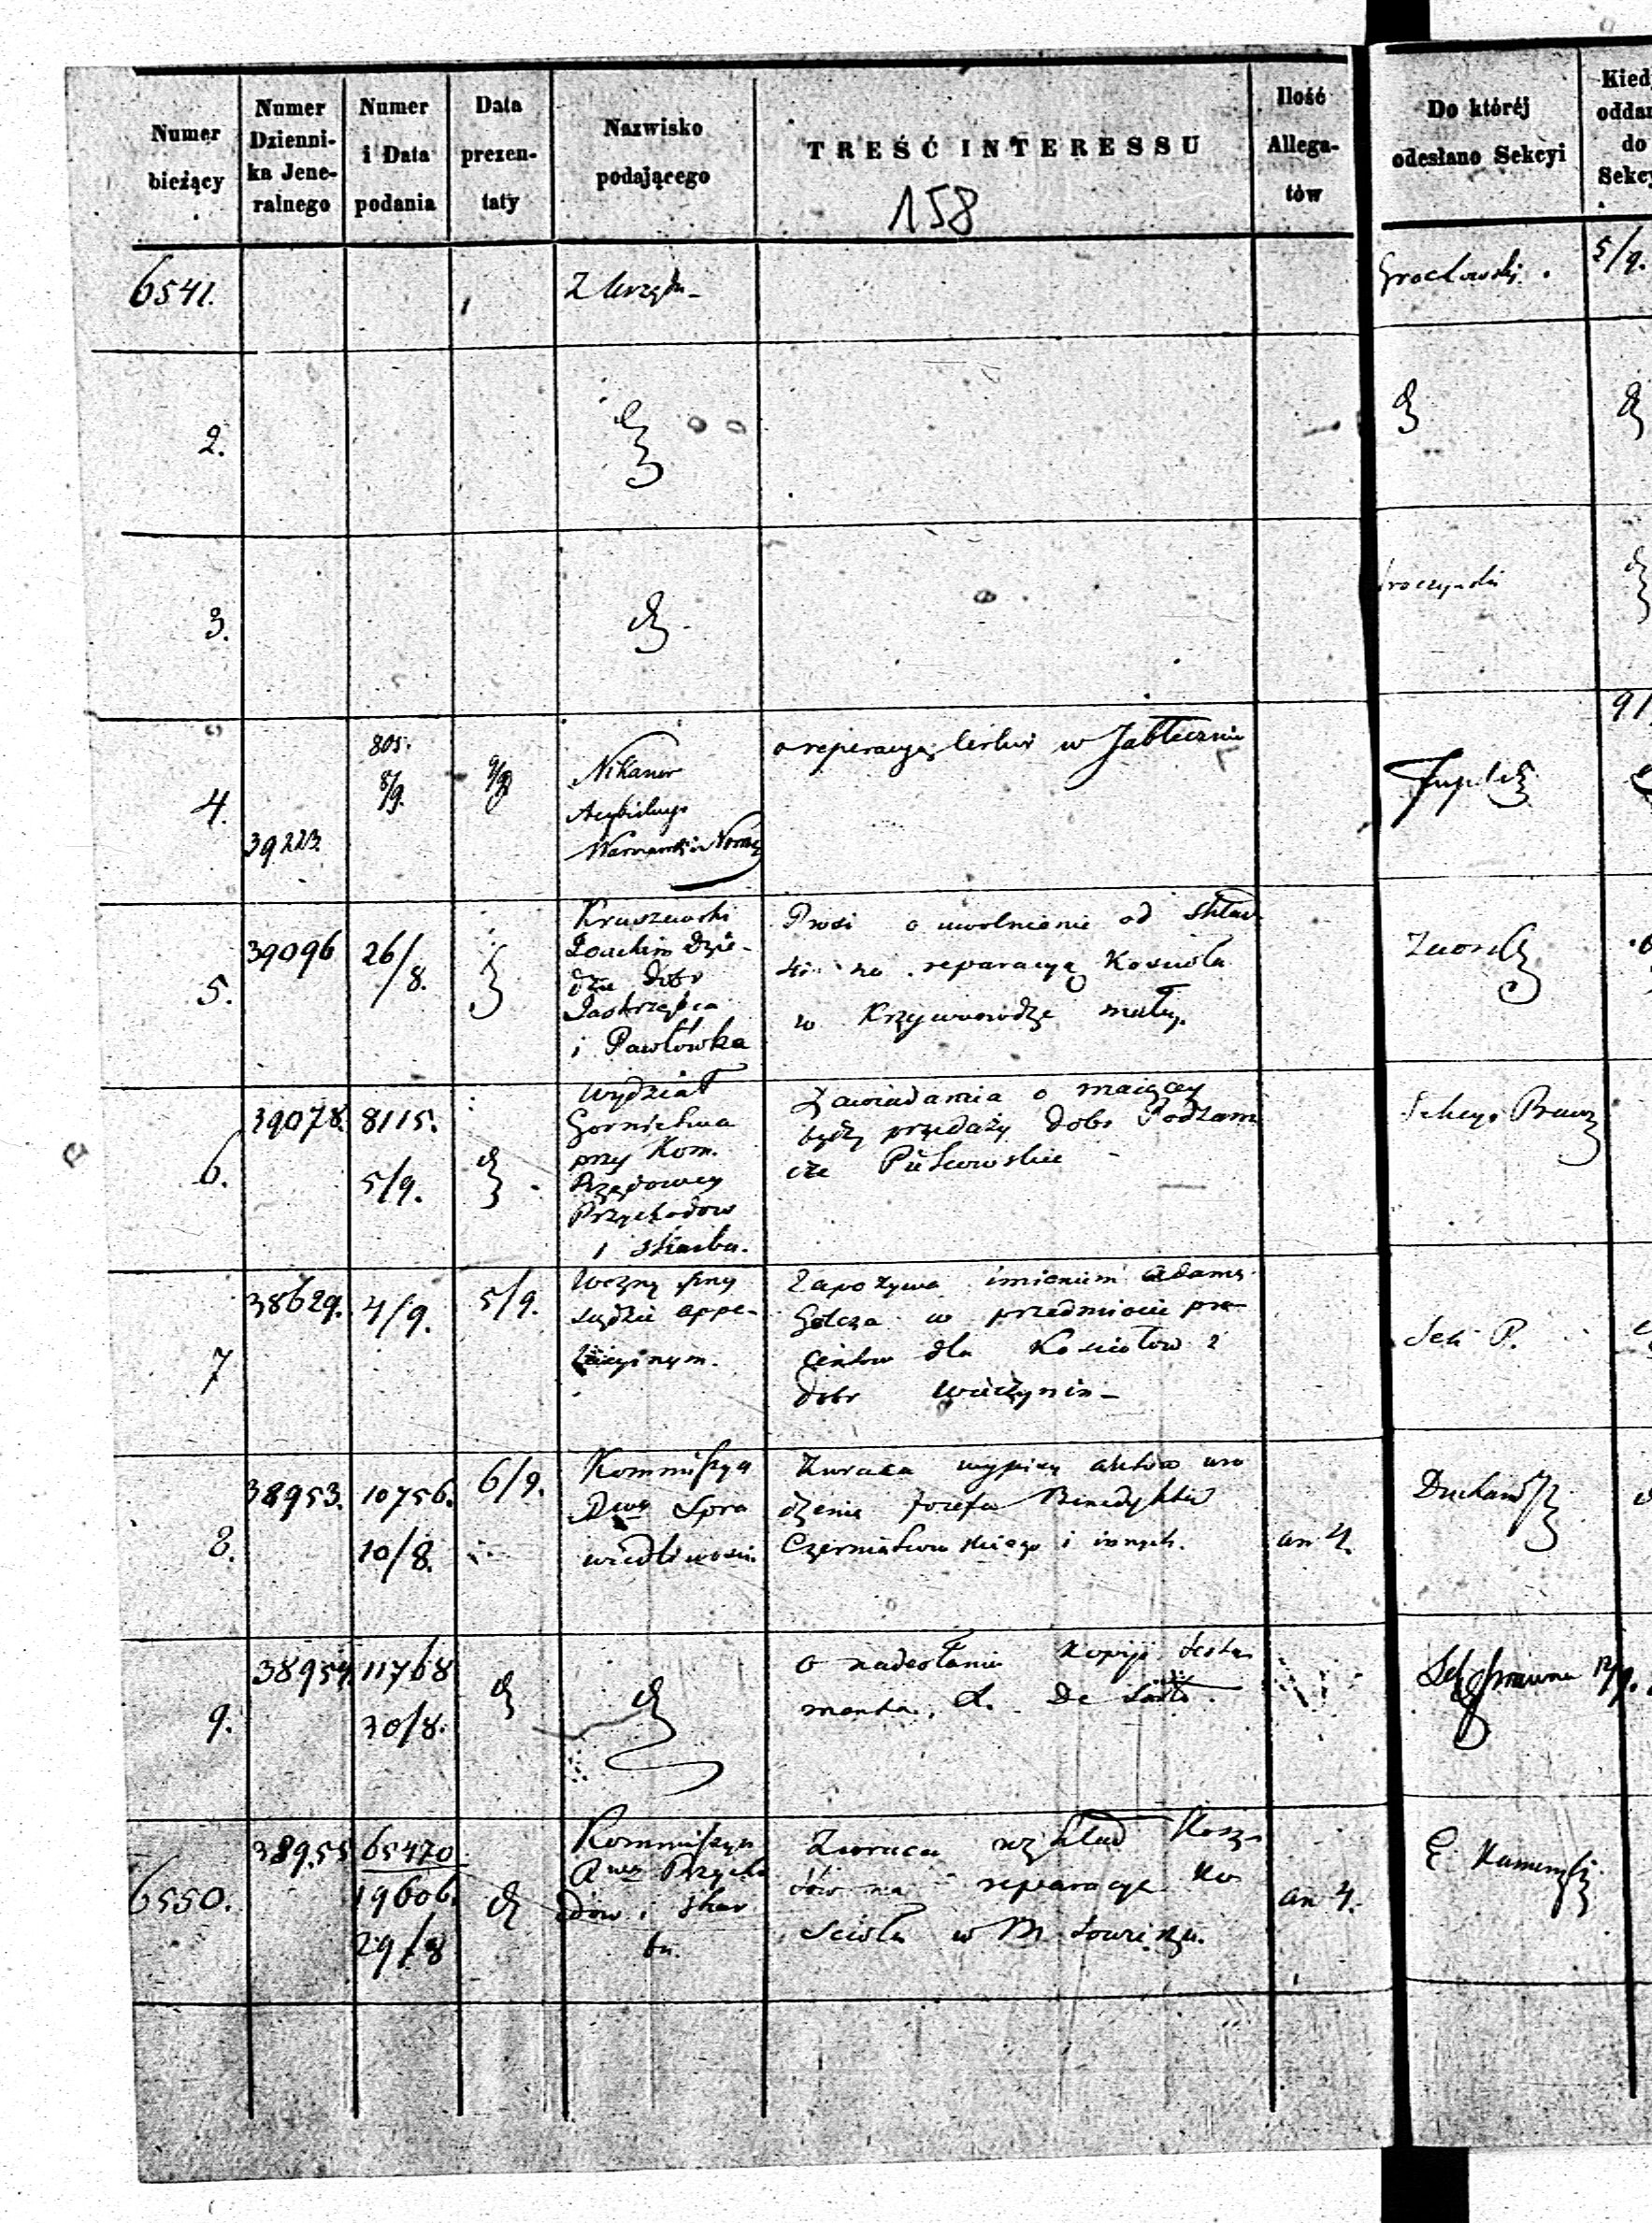 Numer bieżący
Numer Dzienni- ka Jene- ralnego
Numer i Data podania
Data prezen- taty
Nazwisko podającego
TREŚĆ INTERESSU
158
Ilość Allega- tów
Do któréj odesłano Sekcyi
Kied
oddan
do
Sekcy
6541.
Z Urzędu
5/9.
2.
3.
4.
39223.
805.
8/9.
9/9
Nikanor
Arcybiskup
Warszawski
o reperacyą cerkwi w Jabłecznie
5.
39096
26/8.
Kruszewski
Joachim Dzie-
dzic Dóbr
Jastrzębca
i Pawłówka
Prosi o uwolnienie od skład
ki na reparacyą Kościoła
w Krzynowłodze małej.
6.
39078.
8115.
5/9.
Wydział
Gornictwa
przy Kom.
Rządowey
Przychodow
i Skarbu.
Zawiadamia o maiącey
bydź przedaży Dobr Podzam
cze
Sekcya Prawn
7
38629.
4/9.
5/9.
Wozny przy
sądzie appe-
lacyinym.
Zapozywa imieniem Adama
Golcza w przedmiocie pro
centow dla Kosciołow z
dobr
Sek P.
8.
38953.
10756.
10/8.
6/9.
Kommissya
Rwa Spra
wiedliwosci.
Zwraca wypisy aktów uro
dzenia Jozefa Benedykta
i innych.
an 4.
9.
38954
11768
30/8.
o nadesłanie Kopii testa
mentu
Sek Prawna
12/9.
6550.
38955
65470
19606.
29/8
Kommissya
Rwa Przycho
dow i Skar
bu.
Zwraca rozkład Kosz
tów na reparacye Ko
scioła w M. Łowiczu.
an 4.